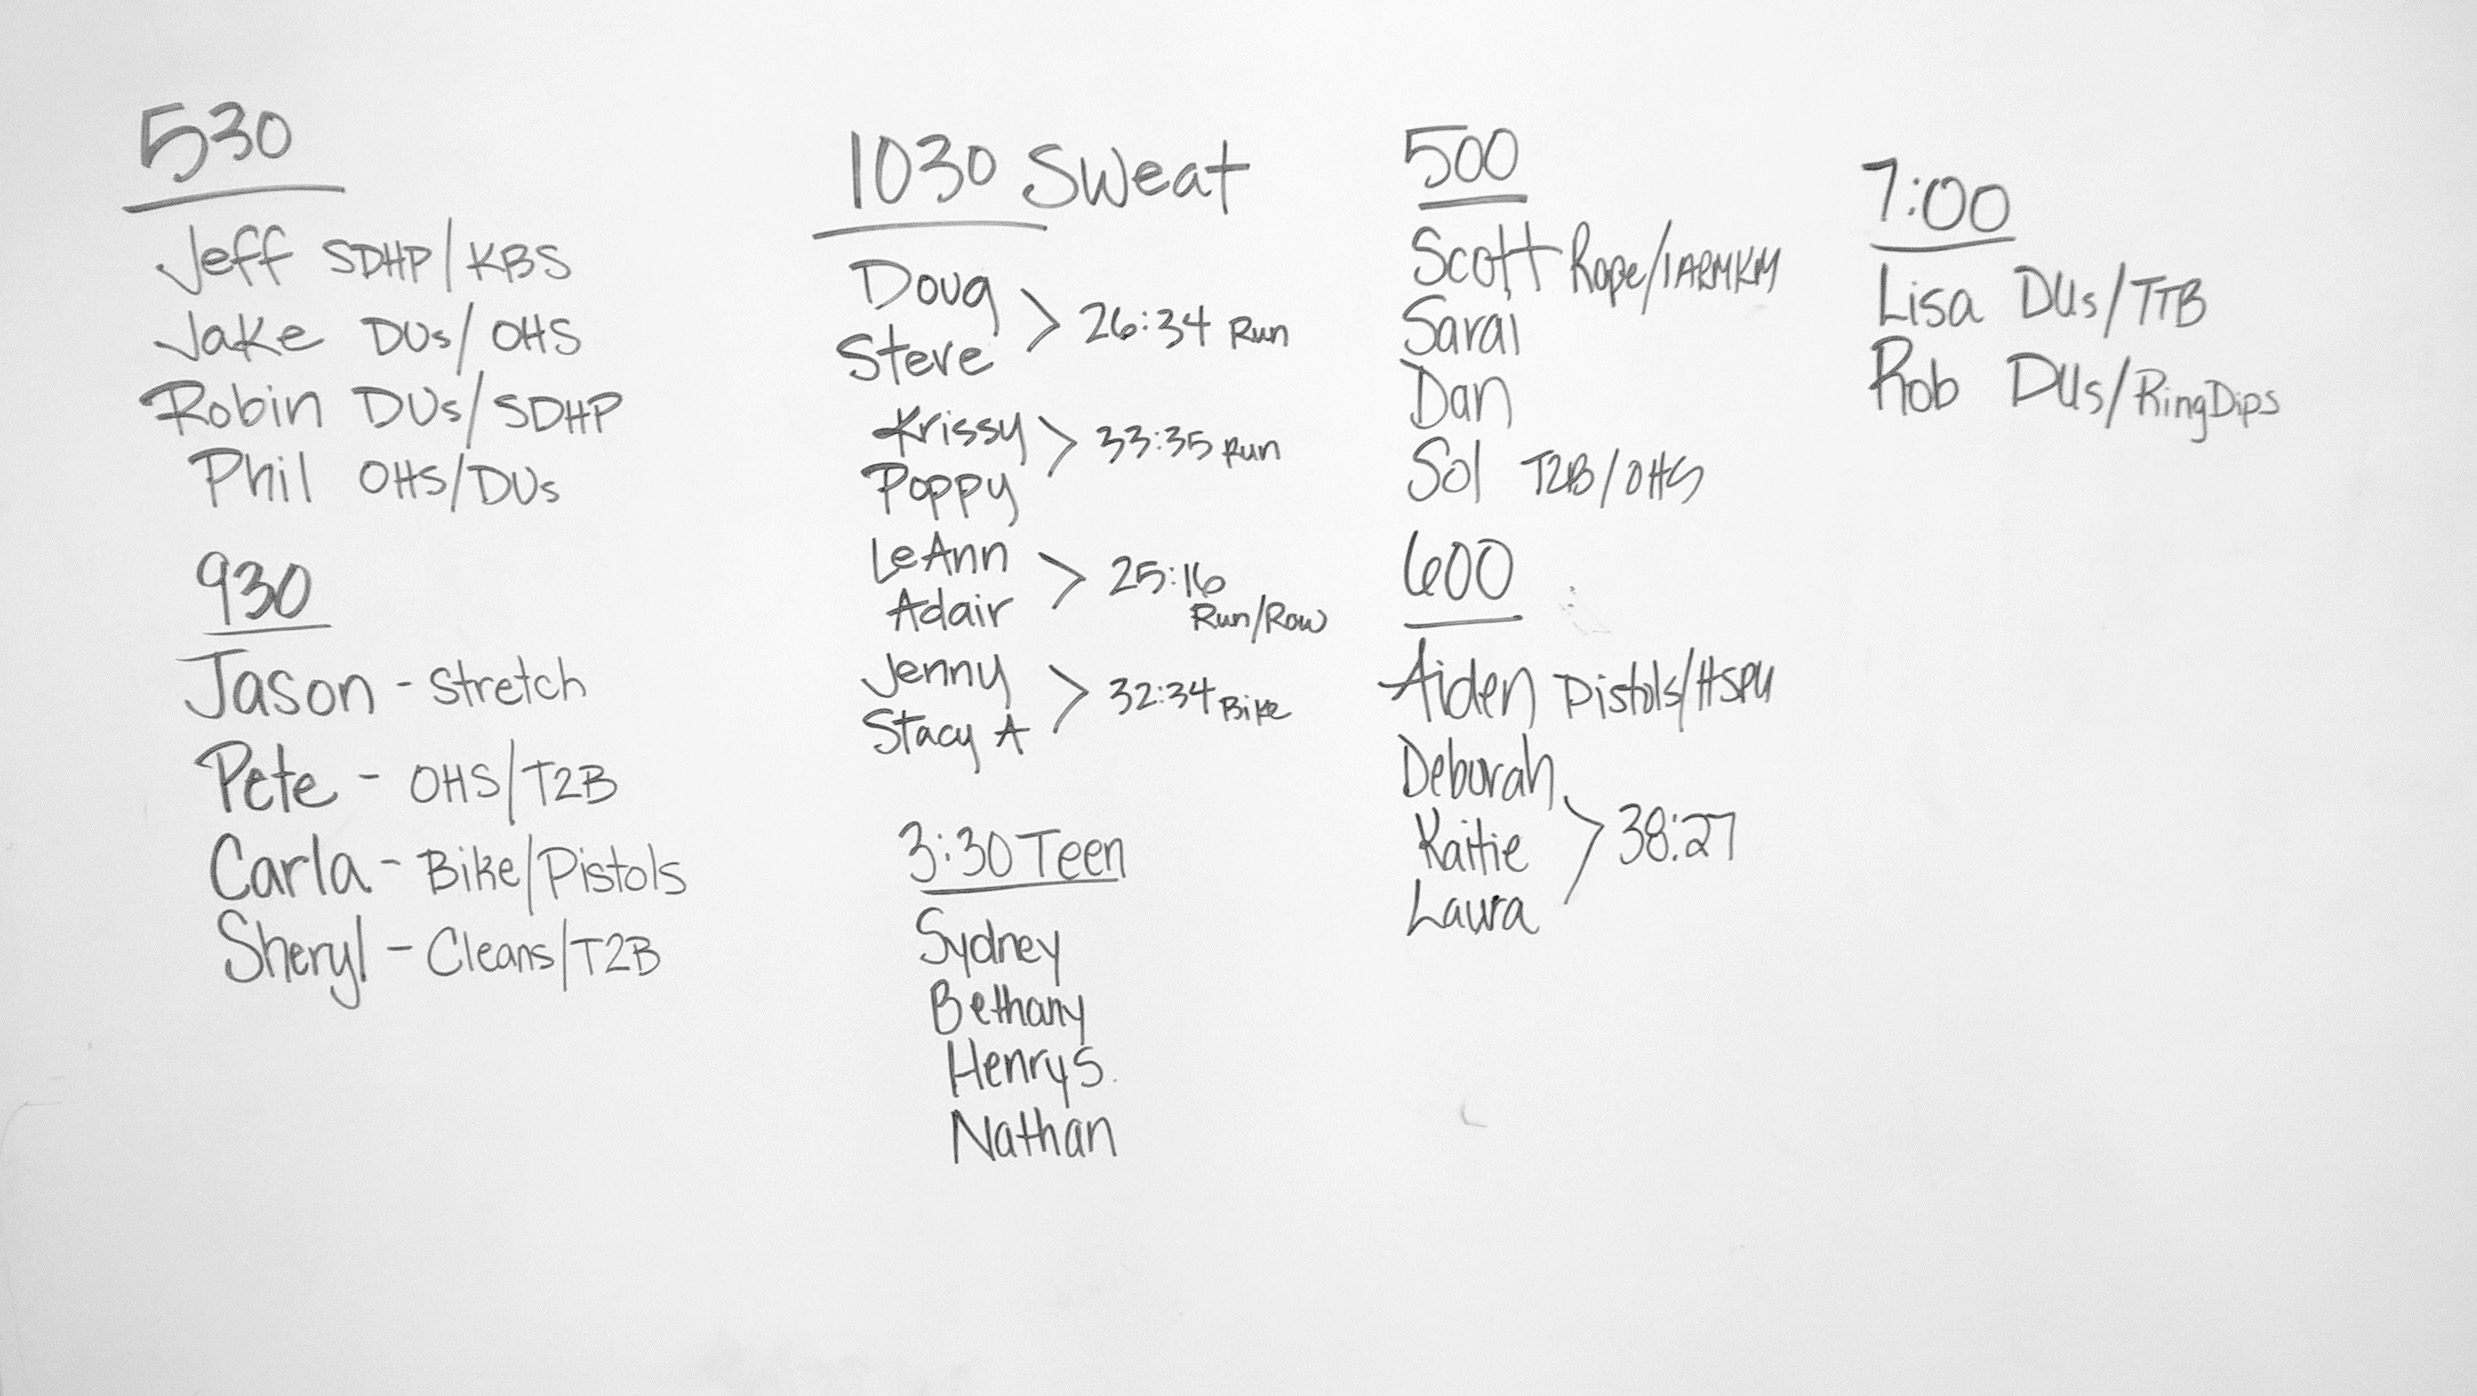 530
Jeff SDHP/KBS
Jake DUs/OHS
Robin DUs/SDHP
Phil OHS/DUs
930
Jason - Stretch
Pete - OHS/T2B
Carla - Bike/Pistols
Sheryl - Cleans/T2B
1030 Sweat
Doug
Steve > 26:34 Run
Krissy
Poppy > 33:35 Run
LeAnn
Adair > 25:16 Run/Row
Jenny
Stacy A > 32:34 Bike
3:30 Teen
Sydney
Bethany
Henry S.
Nathan
500
Scott Rope/
Sarai
Dan
Sol T2B/OHS
600
Aiden Pistols/HSPU
Deborah
Kaitie > 38:27
Laura
7:00
Lisa DUs/TTB
Rob DUs/RingDips